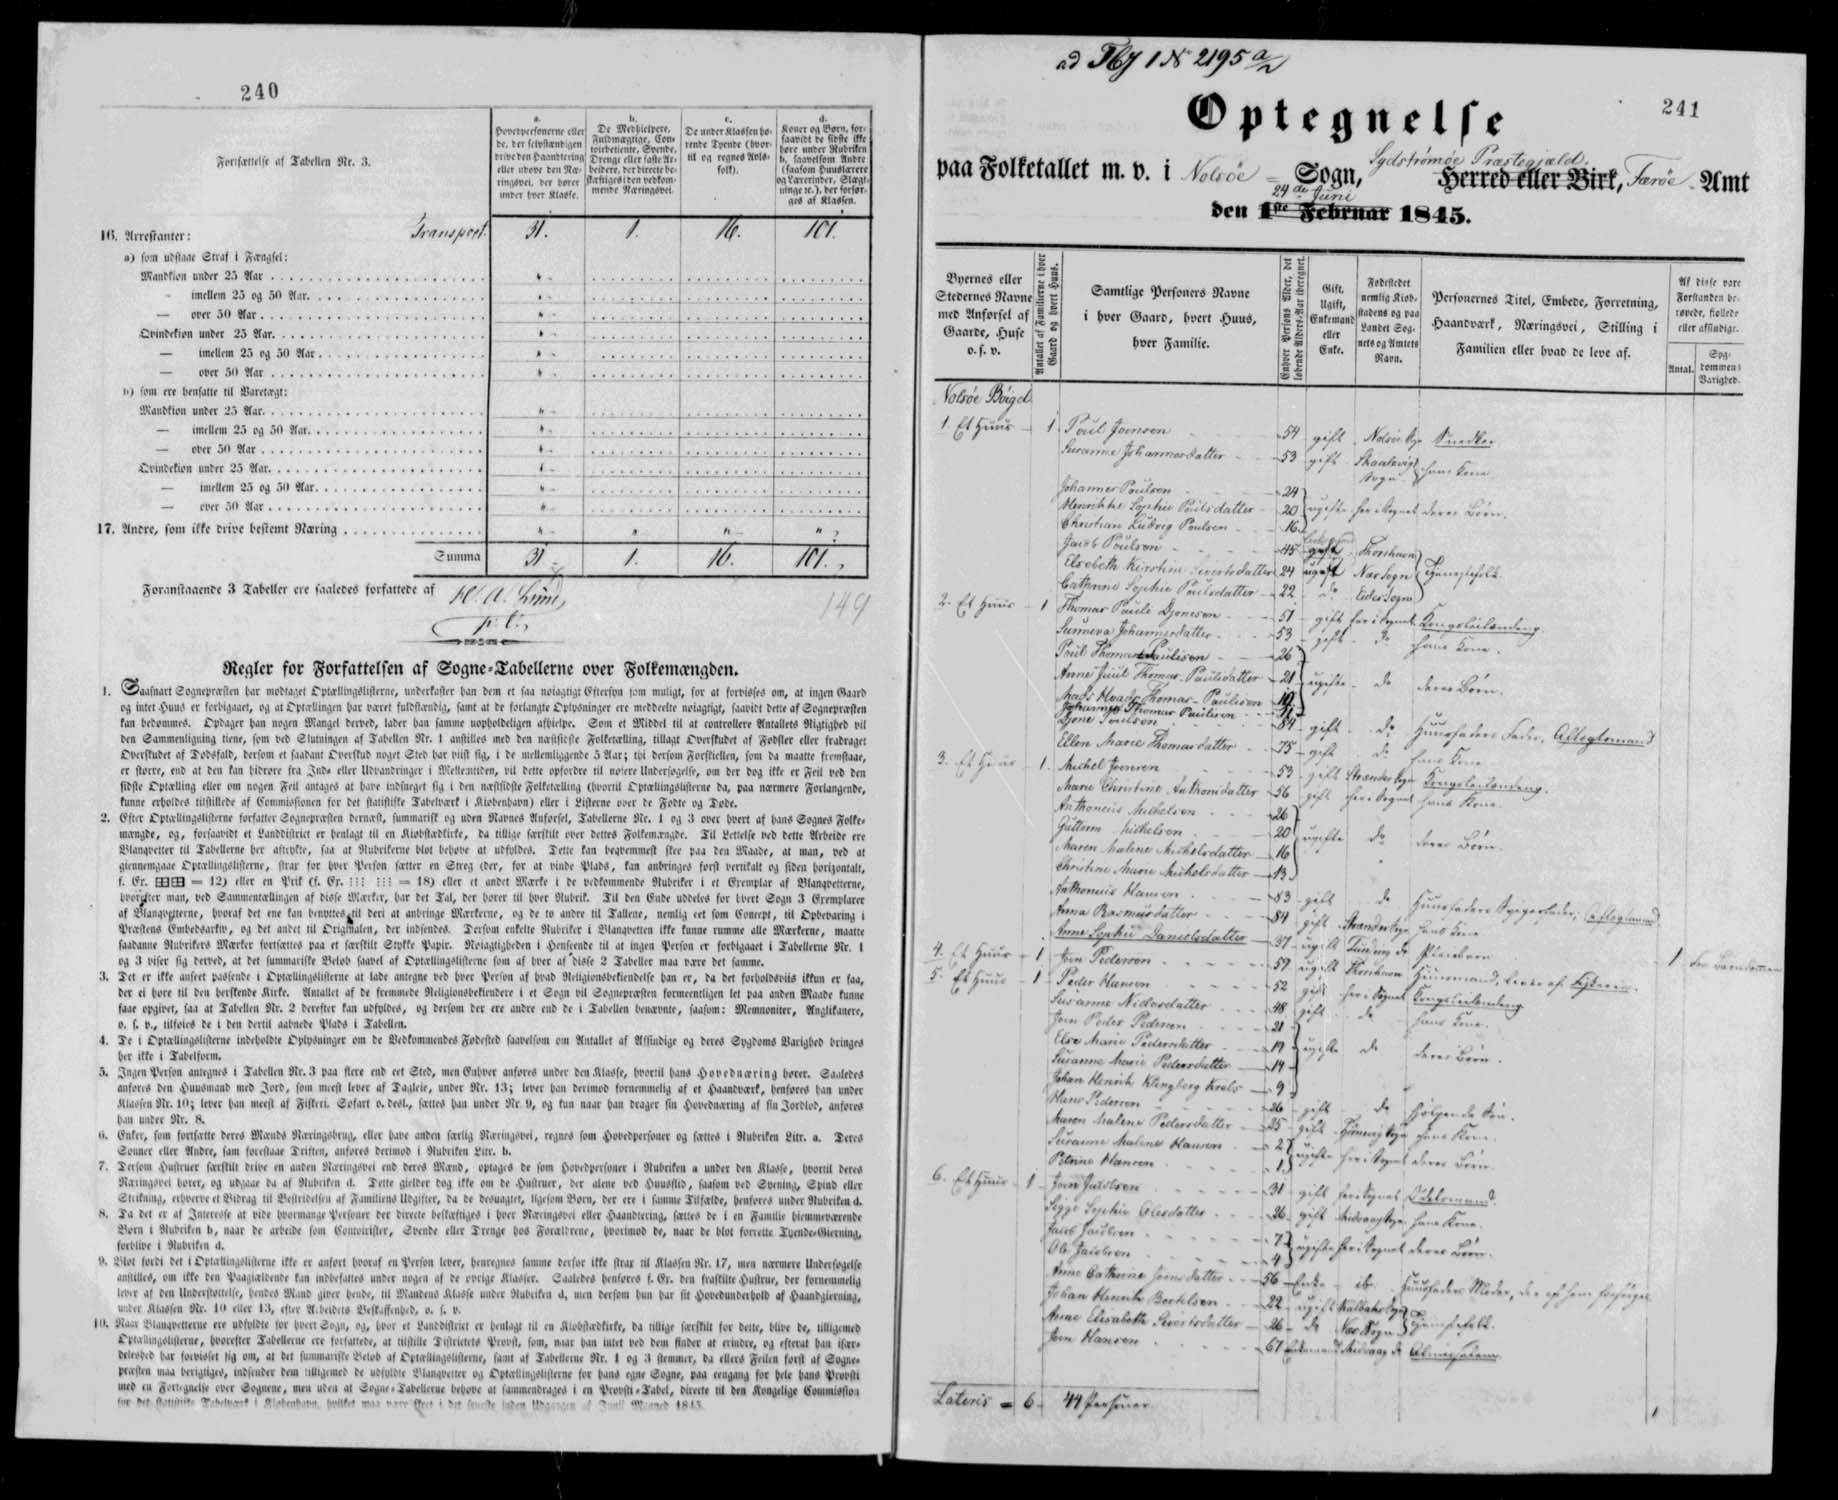 240
Fortsættelse af Tabellen Nr. 3.
a.
Hovedpersonerne eller
de, der selvstændigen
drive den Haandtering
eller udøve den Næ-
ringsvei, der hører
under hver Klasse.
b.
De Medhielpere,
Fuldmægtige, Con-
toirbetiente, Svende,
Drenge eller faste Ar-
beidere, der directe be-
skæftiges i den vedkom-
mende Næringsvei.
c.
De under Klassen hø-
rende Tyende (hvor-
til og regnes Avls-
folk).
d.
Koner og Børn, for-
saavidt de sidste ikke
høre under Rubriken
b, saavelsom Andre
(saasom Huuslærere
og Lærerinder, Slægt-
ninge rc.), der forsør-
ges af Klassen.
16. Arrestanter: Transport. 31. 1. 16. 101.
a) som udstaae Straf i Fængsel:
Mandkion under 25 Aar
— imellem 25 og 50 Aar
— over 50 Aar
Qvindekion under 25 Aar
— imellem 25 og 50 Aar
— over 50 Aar
b) som ere hensatte til Varetægt:
Mandkion under 25 Aar
— imellem 25 og 50 Aar
— over 50 Aar
Qvindekion under 25 Aar
— imellem 25 og 50 Aar
— over 50 Aar
17. Andre, som ikke drive bestemt Næring
Summa 31. 1. 16. 101.
Foranstaaende 3 Tabeller ere saaledes forfattede af
149
Regler for Forfattelsen af Sogne-Tabellerne over Folkemængden.
1. Saasnart Sognepræsten har modtaget Optællingslisterne, underkaster han dem et saa nøiagtigt Eftersyn som muligt, for at forvisses om, at ingen Gaard
og intet Huus er forbigaaet, og at Optællingen har været fuldstændig, samt at de forlangte Oplysninger ere meddeelte nøiagtigt, saavidt dette af Sognepræsten
kan bedømmes. Opdager han nogen Mangel derved, lader han samme uopholdeligen afhielpe. Som et Middel til at controllere Antallets Rigtighed vil
den Sammenligning tiene, som ved Slutningen af Tabellen Nr. 1 anstilles med den næstsidste Folketælling, tillagt Overskudet af Fødsler eller fradraget
Overskudet af Dødsfald, dersom et saadant Overskud noget Sted har viist sig, i de mellemliggende 5 Aar; thi dersom Forskiellen, som da maatte fremstaae,
er større, end at den kan hidrøre fra Ind- eller Udvandringer i Mellemtiden, vil dette opfordre til nøiere Undersøgelse, om der dog ikke er Feil ved den
sidste Optælling eller om nogen Feil antages at have indsneget sig i den næstsidste Folketælling (hvortil Optællingslisterne da, paa nærmere Forlangende,
kunne erholdes tilstillede af Commissionen for det statistiske Tabelværk i Kiøbenhavn) eller i Listerne over de Fødte og Døde.
2. Efter Optællingslisterne forfatter Sognepræsten dernæst, summarisk og uden Navnes Anførsel, Tabellerne Nr. 1 og 3 over hvert af hans Sognes Folke-
mængde, og, forsaavidt et Landdistrict er henlagt til en Kiøbstædkirke, da tillige særskilt over dettes Folkemængde. Til Lettelse ved dette Arbeide ere
Blanqvetter til Tabellerne her aftrykte, saa at Rubrikerne blot behøve at udfyldes. Dette kan beqvemmest skee paa den Maade, at man, ved at
giennemgaae Optællingslisterne, strax for hver Person sætter en Streg (der, for at vinde Plads, kan anbringes først vertikalt og siden horizontalt,
f. Ex. = 12) eller en Prik (f. Ex. = 18) eller et andet Mærke i de vedkommende Rubriker i et Exemplar af Blanqvetterne,
hvorefter man, ved Sammentællingen af disse Mærker, har det Tal, der hører til hver Rubrik. Til den Ende uddeles for hvert Sogn 3 Exemplarer
af Blanqvetterne, hvoraf det ene kan benyttes til deri at anbringe Mærkerne, og de to andre til Tallene, nemlig eet som Concept, til Opbevaring i
Præstens Embedsarkiv, og det andet til Originalen, der indsendes. Dersom enkelte Rubriker i Blanqvetten ikke kunne rumme alle Mærkerne, maatte
saadanne Rubrikers Mærker fortsættes paa et særskilt Stykke Papir. Nøiagtigheden i Henseende til at ingen Person er forbigaaet i Tabellerne Nr. 1
og 3 viser sig derved, at det summariske Beløb saavel af Optællingslisterne som af hver af disse 2 Tabeller maa være det samme.
3. Det er ikke anseet passende i Optællingslisterne at lade antegne ved hver Person af hvad Religionsbekiendelse han er, da det forholdsviis ikkun er faa,
der ei høre til den herskende Kirke. Antallet af de fremmede Religionsbekiendere i et Sogn vil Sognepræsten formeentligen let paa anden Maade kunne
faae opgivet, saa at Tabellen Nr. 2 derefter kan udfyldes, og dersom der ere andre end de i Tabellen benævnte, saasom: Memnoniter, Anglikanere,
o. s. v., tilføies de i den dertil aabnede Plads i Tabellen.
4. De i Optællingslisterne indeholdte Oplysninger om de Vedkommendes Fødested saavelsom om Antallet af Afsindige og deres Sygdoms Varighed bringes
her ikke i Tabelform.
5. Ingen Person antegnes i Tabellen Nr. 3 paa flere end eet Sted, men Enhver anføres under den Klasse, hvortil hans Hovednæring hører. Saaledes
anføres den Huusmand med Jord, som meest lever af Dagleie, under Nr. 13; lever han derimod fornemmelig af et Haandværk, henføres han under
Klassen Nr. 10; lever han meest af Fiskeri, Søfart o. desl., sættes han under Nr. 9, og kun naar han drager sin Hovednæring af sin Jordlod, anføres
han under Nr. 8.
6. Enker, som fortsætte deres Mænds Næringsbrug, eller have anden særlig Næringsvei, regnes som Hovedpersoner og sættes i Rubriken Litr. a. Deres
Sønner eller Andre, sam forestaae Driften, anføres derimod i Rubriken Litr. b.
7. Dersom Hustruer særskilt drive en anden Næringsvei end deres Mænd, optages de som Hovedpersoner i Rubriken a under den Klasse, hvortil deres
Næringsvei hører, og udgaae da af Rubriken d. Dette gielder dog ikke om de Hustruer, der alene ved Huusflid, saasom ved Spening, Spind eller
Strikning, erhverve et Bidrag til Bestridelsen af Familiens Udgifter, da de desuagtet, ligesom Børn, der ere i samme Tilfælde, henføres under Rubriken d.
8. Da det er af Interesse at vide hvormange Personer der directe beskæftiges i hver Næringsvei eller Haandtering, sættes de i en Familie hiemmeværende
Børn i Rubriken b, naar de arbeide som Contoirister, Svende eller Drenge hos Forældrene, hvorimod de, naar de blot forrette Tyende-Gierning,
forblive i Rubriken d.
9. Blot fordi det i Optællingslisterne ikke er anført hvoraf en Person lever, henregnes samme derfor ikke strax til Klassen Nr. 17, men nærmere Undersøgelse
anstilles, om ikke den Paagiældende kan indbefattes under nogen af de øvrige Klasser. Saaledes henføres f. Ex. den fraskilte Hustrue, der fornemmelig
lever af den Understøttelse, hendes Mand giver hende, til Mandens Klasse under Rubriken d, men dersom hun har sit Hovedunderhold af Haandgierning,
under Klassen Nr. 10 eller 13, efter Arbeidets Beskaffenhed, o. s. v.
10. Naar Blanqvetterne ere udfyldte for hvert Sogn, og, hvor et Landdistrict er henlagt til en Kiøbstædkirke, da tillige særskilt for dette, blive de, tilligemed
Optællingslisterne, hvorefter Tabellerne ere forfattede, at tilstille Districtets Provst, som, naar han intet ved dem finder at erindre, og efterat han især-
deleshed har forvisset sig om, at det summariske Beløb af Optællingslisterne, samt af Tabellerne Nr. 1 og 3 stemmer, da ellers Feilen først af Sogne-
præsten maa berigtiges, indsender dem tilligemed de udfyldte Blanqvetter og Optællingslisterne for hans egne Sogne, paa eengang for hele hans Provsti
med en Fortegnelse over Sognene, men uden at Sogne-Tabellerne behøve at sammendrages i en Provsti-Tabel, directe til den Kongelige Commission
for det statistiske Tabelværk i Kiøbenhavn, hvilket maa være skeet i det seneste inden Udgangen af Junii Maaned 1845.
ad Tby 1 N 2195 a/2
241
Optegnelse
Sydstrømøe Præstegjæld.
paa Folketallet m. v. i Nolsöe Sogn, Herred eller Birk, Færøe Amt
24de Juni
den 1ste Februar 1845.
Byernes eller
Stedernes Navne
med Anførsel af
Gaarde, Huse
o. s. v.
Antallet af Familierne i hver
Gaard og hvert Huus.
Samtlige Personers Navne
i hver Gaard, hvert Huus,
hver Familie.
Enhver Persons Alder, det
løbende Alders-Aar iberegnet.
Gift,
Ugift,
Enkemand
eller
Enke.
Fødestedet
nemlig Kiøb-
stadens og paa
Landet Sog-
nets og Amtets
Navn.
Personernes Titel, Embede, Forretning,
Haandværk, Næringsvei, Stilling i
Familien eller hvad de leve af.
Af disse vare
Forstanden be-
røvede, fiollede
eller afsindige.
Antal.
Syg-
dommens
Varighed.
Nolsöe Böigd
1. Et Huus 1 Poul Joensen 54 gift Nolsöe Sogn Snedker
Susanne Johannesdatter 53 gift Skaalevigs Sogn hans Kone
Johannes Poulsen 24
Henrikke Sophie Poulsdatter 20 ugifte her i Sognet deres Børn.
Christian Ludvig Poulsen 16
Jacob Poulsen 45 Thorshavn
Elsebeth Kirstine Sivertsdatter 24 ugift Næs Sogn Tjenestefolk
Cathrine Sophie Poulsdatter 22 do Eides Sogn
2. Et Huus 1 Thomas Pauli Djonesen 51 gift her i Sognet Kongsleilænding.
Sunneva Johannesdatter 53 gift do hans Kone.
Poul Thomas Paulisen 26
Anne Juul Thomas-Paulsdatter 21 ugifte do deres Børn.
Mads Thomas-Paulisen
Johannes Thomas Paulisen
Djone Poulsen 84 gift do Huusfaders Fader, Aftægtsmand
Ellen Marie Thomasdatter 75 gift do hans Kone
3. Et Huus 1 Michel Joensen 53 gift Strender Sogn Kongsleilænding.
Marie Christine Anthonisdatter 56 gift her i Sognet hans Kone.
Anthonius Michelsen 26
Guttorm Michelsen 20 ugifte do deres Børn.
Maren Malene Michelsdatter 16
Christine Marie Michelsdatter 13
Anthonius Hansen 83 gift do Huusfaders Svigerfader, Aftægtsmand
Anna Rasmusdatter 84 gift Strender Sogn hans Kone
Anne Sophie Danielsdatter 37 ugift do Pleiebarn 1 fra Barndommen
4. Et Huus 1 Joen Pedersen 59 ugift Thorshavn Huusmand, lever af Fiskerie.
5. Et Huus 1 Peder Hansen 52 gift her i Sognet Kongsleilænding
Susanne Niclasdatter 48 gift do hans Kone.
Joen Peder Pedersen 21
Else Marie Pedersdatter 19 ugifte do deres Børn.
Susanne Marie Pedersdatter 14
Johan Henrik Klingberg Krols 9
Hans Pedersen 26 gift do Hjelpende Søn.
Maren Malene Pedersdatter 25 gift hans Kone.
Susanne Malene Hansen 2 ugifte her i Sognet deres Børn.
Petrine Hansen 1
6. Et Huus 1 Joen Jacobsen 31 gift her i Sognet Odelsmand.
Sigge Sophie Olesdatter 26 gift Midvaag Sogn hans Kone.
Jacob Jacobsen 7 ugifte her i Sognet deres Børn.
Ole Jacobsen 4
Anne Cathrine Joensdatter 56 Enke ib. Huusfaders Moder, der af ham forsørges
Johan Henrik Bertelsen 22 ugift Kalbaks Sogn Tjenestefolk.
Anne Elisabeth Sivertsdatter 26 do Næs Sogn
Joen Hansen 67 Enkemand Midvaag do Almisselem
Lateris = 6 44 Personer